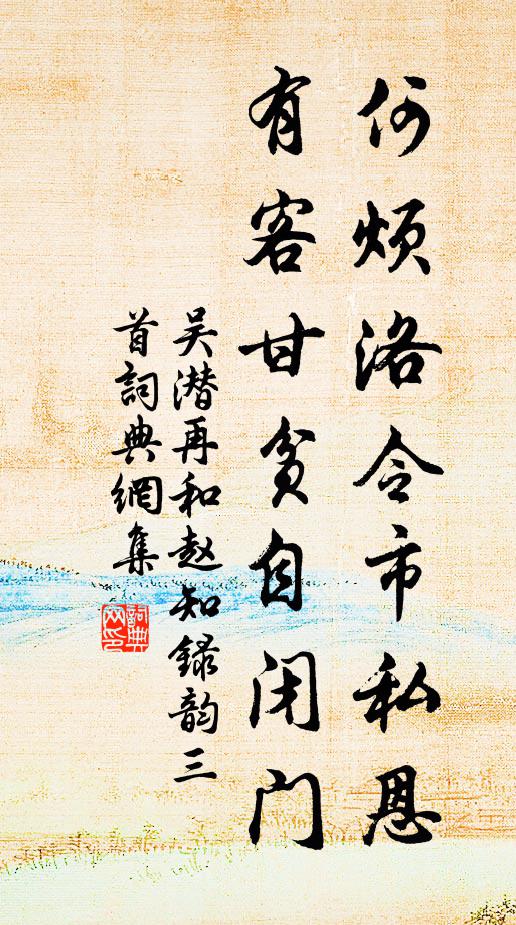 何烦洛令市私恩
有客甘贫自闭门
吴潜再和赵知録韵三
首詞典網集